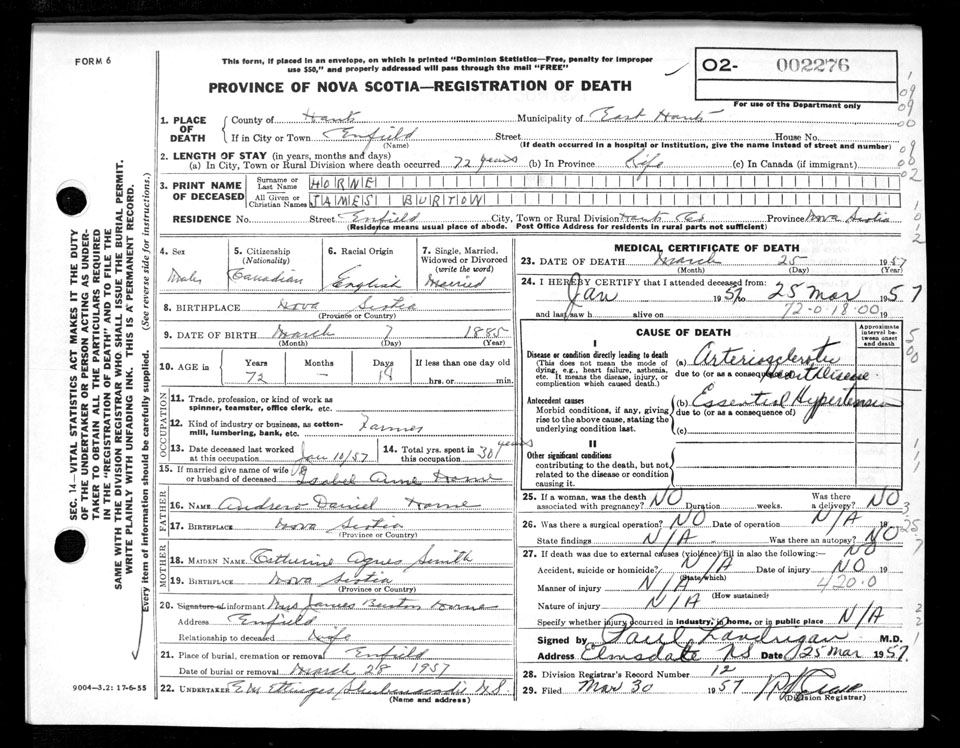 FORM 6
This form, if placed in an envelope, on which is printed "Dominion Statistics—Free, penalty for improper
use $50," and properly addressed will pass through the mail "FREE"
PROVINCE OF NOVA SCOTIA—REGISTRATION OF DEATH
O2- 002276
For use of the Department only
SEC. 14—VITAL STATISTICS ACT MAKES IT THE DUTY
OF THE UNDERTAKER OR PERSON ACTING AS UNDER-
TAKER TO OBTAIN ALL THE PARTICULARS REQUIRED
IN THE "REGISTRATION OF DEATH" AND TO FILE THE
SAME WITH THE DIVISION REGISTRAR WHO SHALL ISSUE THE BURIAL PERMIT.
WRITE PLAINLY WITH UNFADING INK. THIS IS A PERMANENT RECORD.
Every item of information should be carefully supplied. (See reverse side for instructions.)
1. PLACE OF DEATH
County of Hants Municipality of East Hants
If in City or Town Enfield Street House No.
(Name) (If death occurred in a hospital or institution, give the name instead of street and number)
2. LENGTH OF STAY (in years, months and days)
(a) In City, Town or Rural Division where death occurred 72 years (b) In Province Life (c) In Canada (if immigrant)
3. PRINT NAME OF DECEASED
Surname or Last Name HORNE
All Given or Christian Names JAMES BURTON
RESIDENCE No. Street Enfield City, Town or Rural Division Hants Co Province Nova Scotia
(Residence means usual place of abode. Post Office Address for residents in rural parts not sufficient)
4. Sex Male
5. Citizenship (Nationality) Canadian
6. Racial Origin English
7. Single, Married, Widowed or Divorced (write the word) Married
8. BIRTHPLACE Nova Scotia
(Province or Country)
9. DATE OF BIRTH March 7 1885
(Month) (Day) (Year)
10. AGE in Years Months Days If less than one day old
72 - 18 hrs. or min.
OCCUPATION
11. Trade, profession, or kind of work as
spinner, teamster, office clerk, etc.
12. Kind of industry or business, as cotton-
mill, lumbering, bank, etc. Farmer
13. Date deceased last worked at this occupation Jan 10/57
14. Total yrs. spent in this occupation 30 years
15. If married give name of wife
or husband of deceased Isabel Anne Horne
FATHER
16. NAME Andrew Daniel Horne
17. BIRTHPLACE Nova Scotia
(Province or Country)
MOTHER
18. MAIDEN NAME Catherine Agnes Smith
19. BIRTHPLACE Nova Scotia
(Province or Country)
20. Signature of informant Mrs James Burton Horne
Address Enfield
Relationship to deceased Wife
21. Place of burial, cremation or removal Enfield
Date of burial or removal March 28 1957
22. UNDERTAKER Shubenacadie N.S.
(Name and address)
9004—3.2: 17-6-55
MEDICAL CERTIFICATE OF DEATH
23. DATE OF DEATH March 25 1957
(Month) (Day) (Year)
24. I HEREBY CERTIFY that I attended deceased from:
Jan 1957 to 25 Mar 1957
and last saw h alive on 72-0-18-00
CAUSE OF DEATH
Approximate interval between onset and death
I
Disease or condition directly leading to death
(This does not mean the mode of
dying, e.g., heart failure, asthenia,
etc. It means the disease, injury, or
complication which caused death.)
(a) Arteriosclerotic
due to (or as a consequence of) Heart Disease
Antecedent causes
Morbid conditions, if any, giving
rise to the above cause, stating the
underlying condition last.
(b) Essential Hypertension
due to (or as a consequence of)
(c)
II
Other significant conditions
contributing to the death, but not
related to the disease or condition
causing it.
25. If a woman, was the death associated with pregnancy? NO Duration weeks. Was there a delivery? NO
26. Was there a surgical operation? NO Date of operation N/A 19
State findings N/A Was there an autopsy? NO
27. If death was due to external causes (violence) fill in also the following:— NO
Accident, suicide or homicide? N/A Date of injury NO 19
(State which)
Manner of injury N/A 420-0
(How sustained)
Nature of injury N/A
Specify whether injury occurred in industry, in home, or in public place N/A
Signed by Paul Landrigan M.D.
Address Elmsdale NS Date 25 Mar 1957
28. Division Registrar's Record Number 12
29. Filed Mar 30 1957
(Division Registrar)